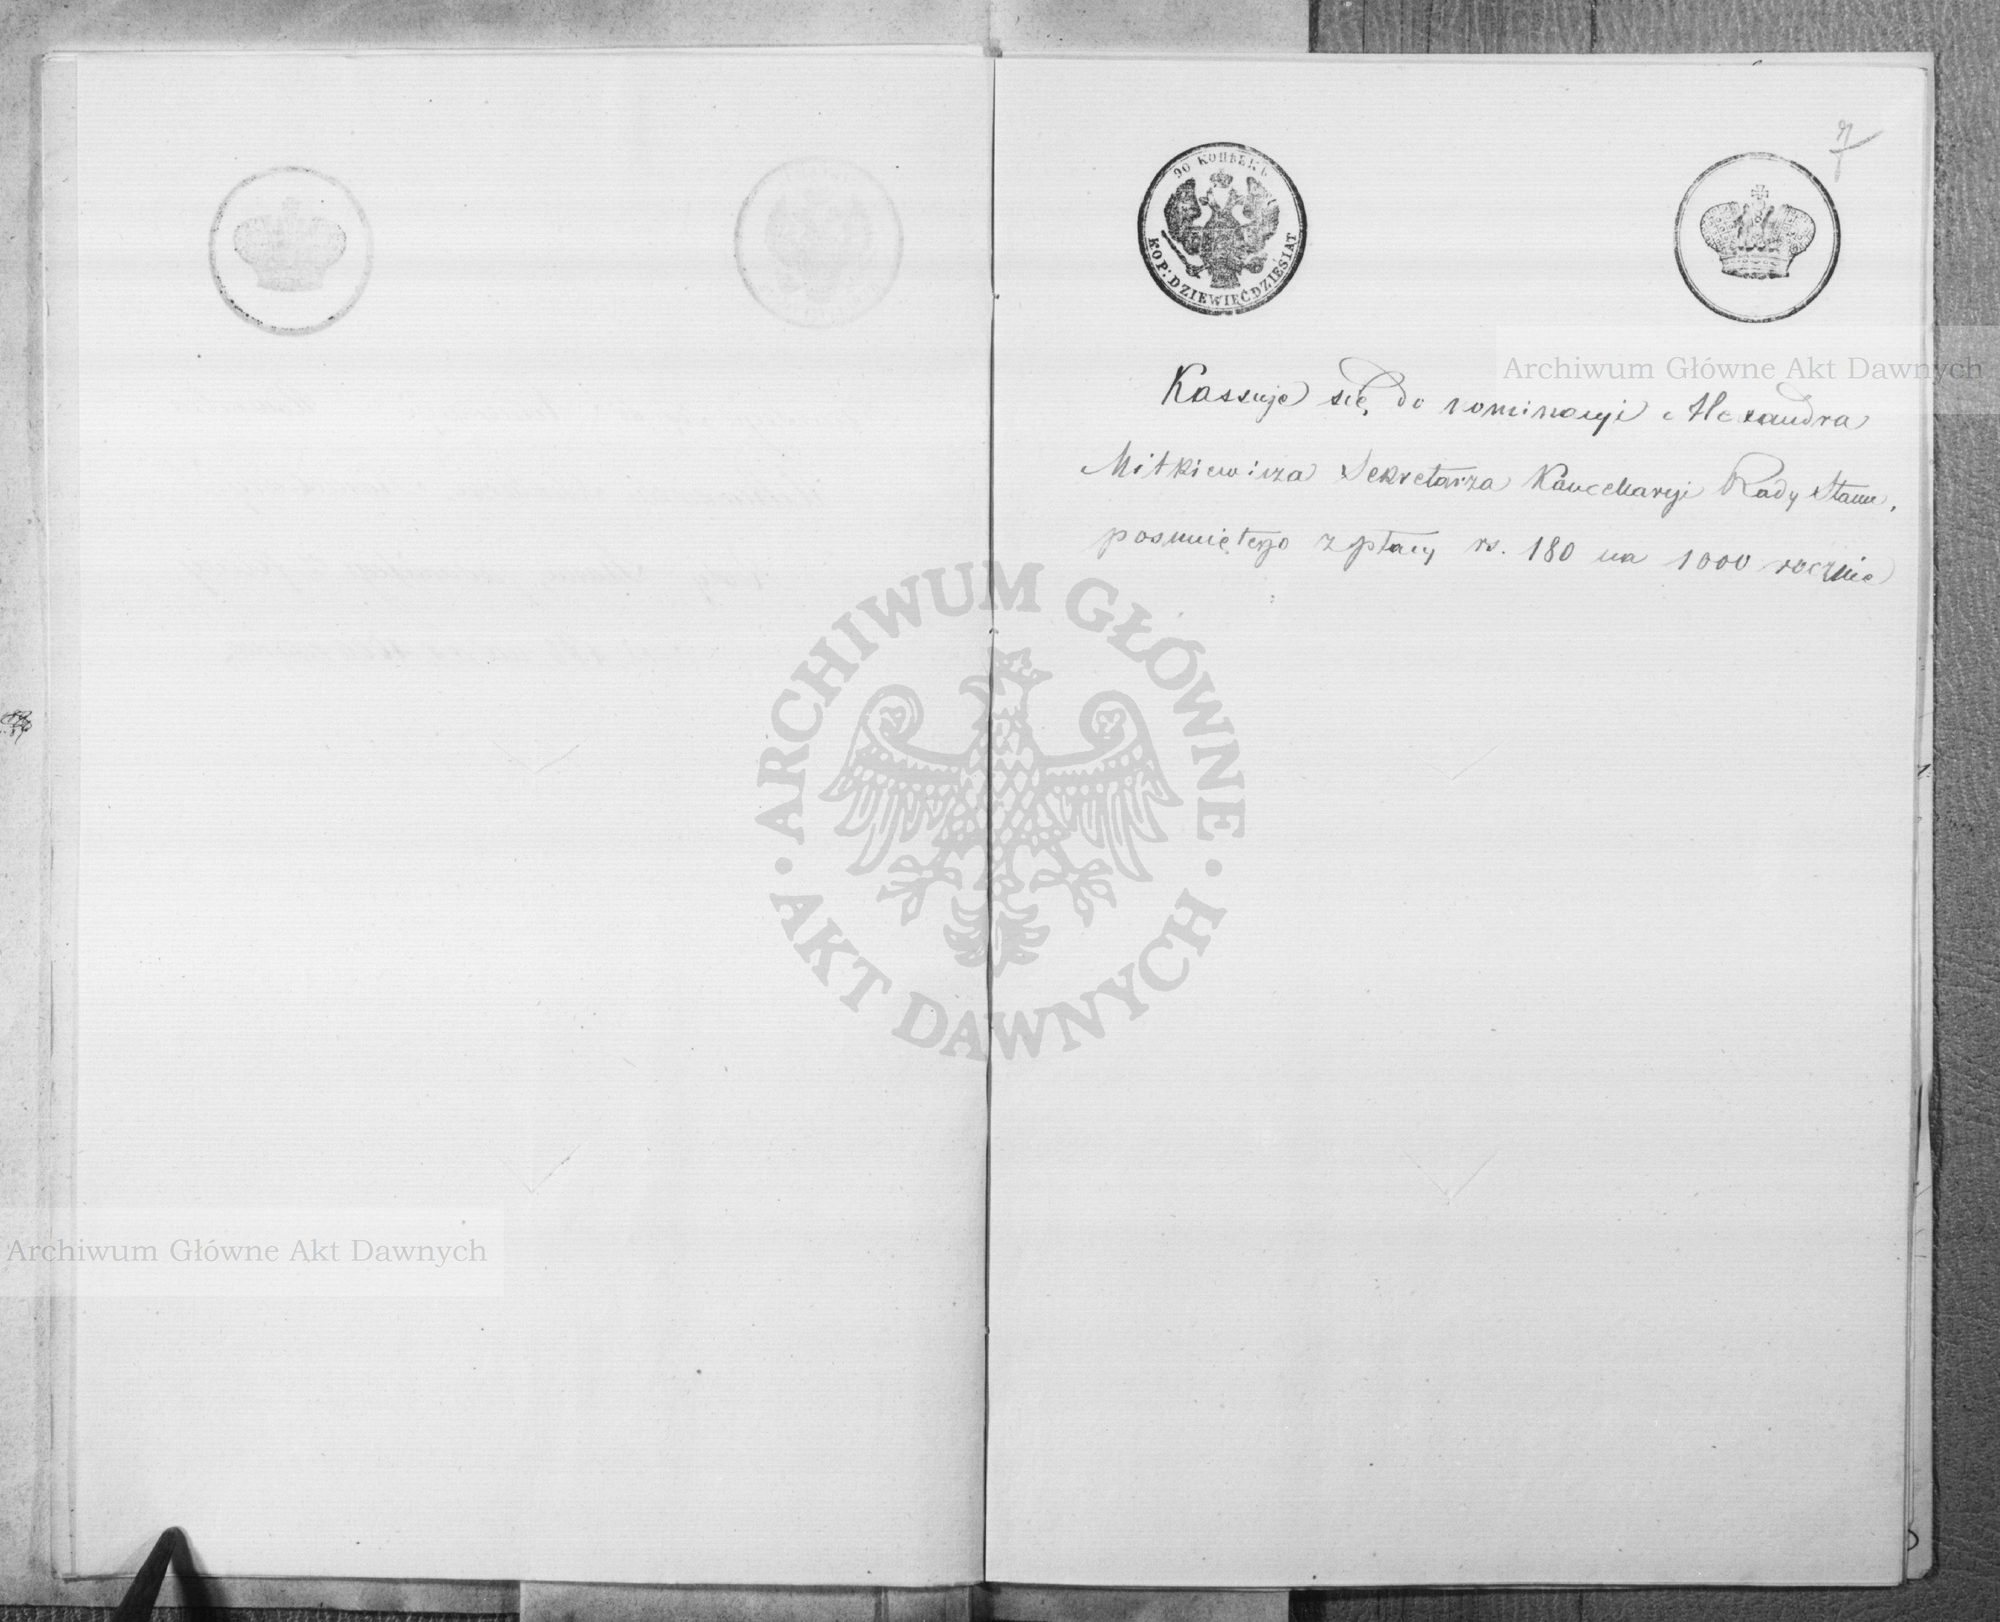 7
90 КОПѢЕКЪ
KOP: DZIEWIĘĆDZIESIĄT
Kassuje się do nominacyi Alexandra
Mitkiewicza Sekretarza Kancellaryi Rady Stanu,
posuniętego z płacy rs. 180 na 1000 rocznie
Archiwum Główne Akt Dawnych
ARCHIWUM GŁÓWNE
AKT DAWNYCH
Archiwum Główne Akt Dawnych